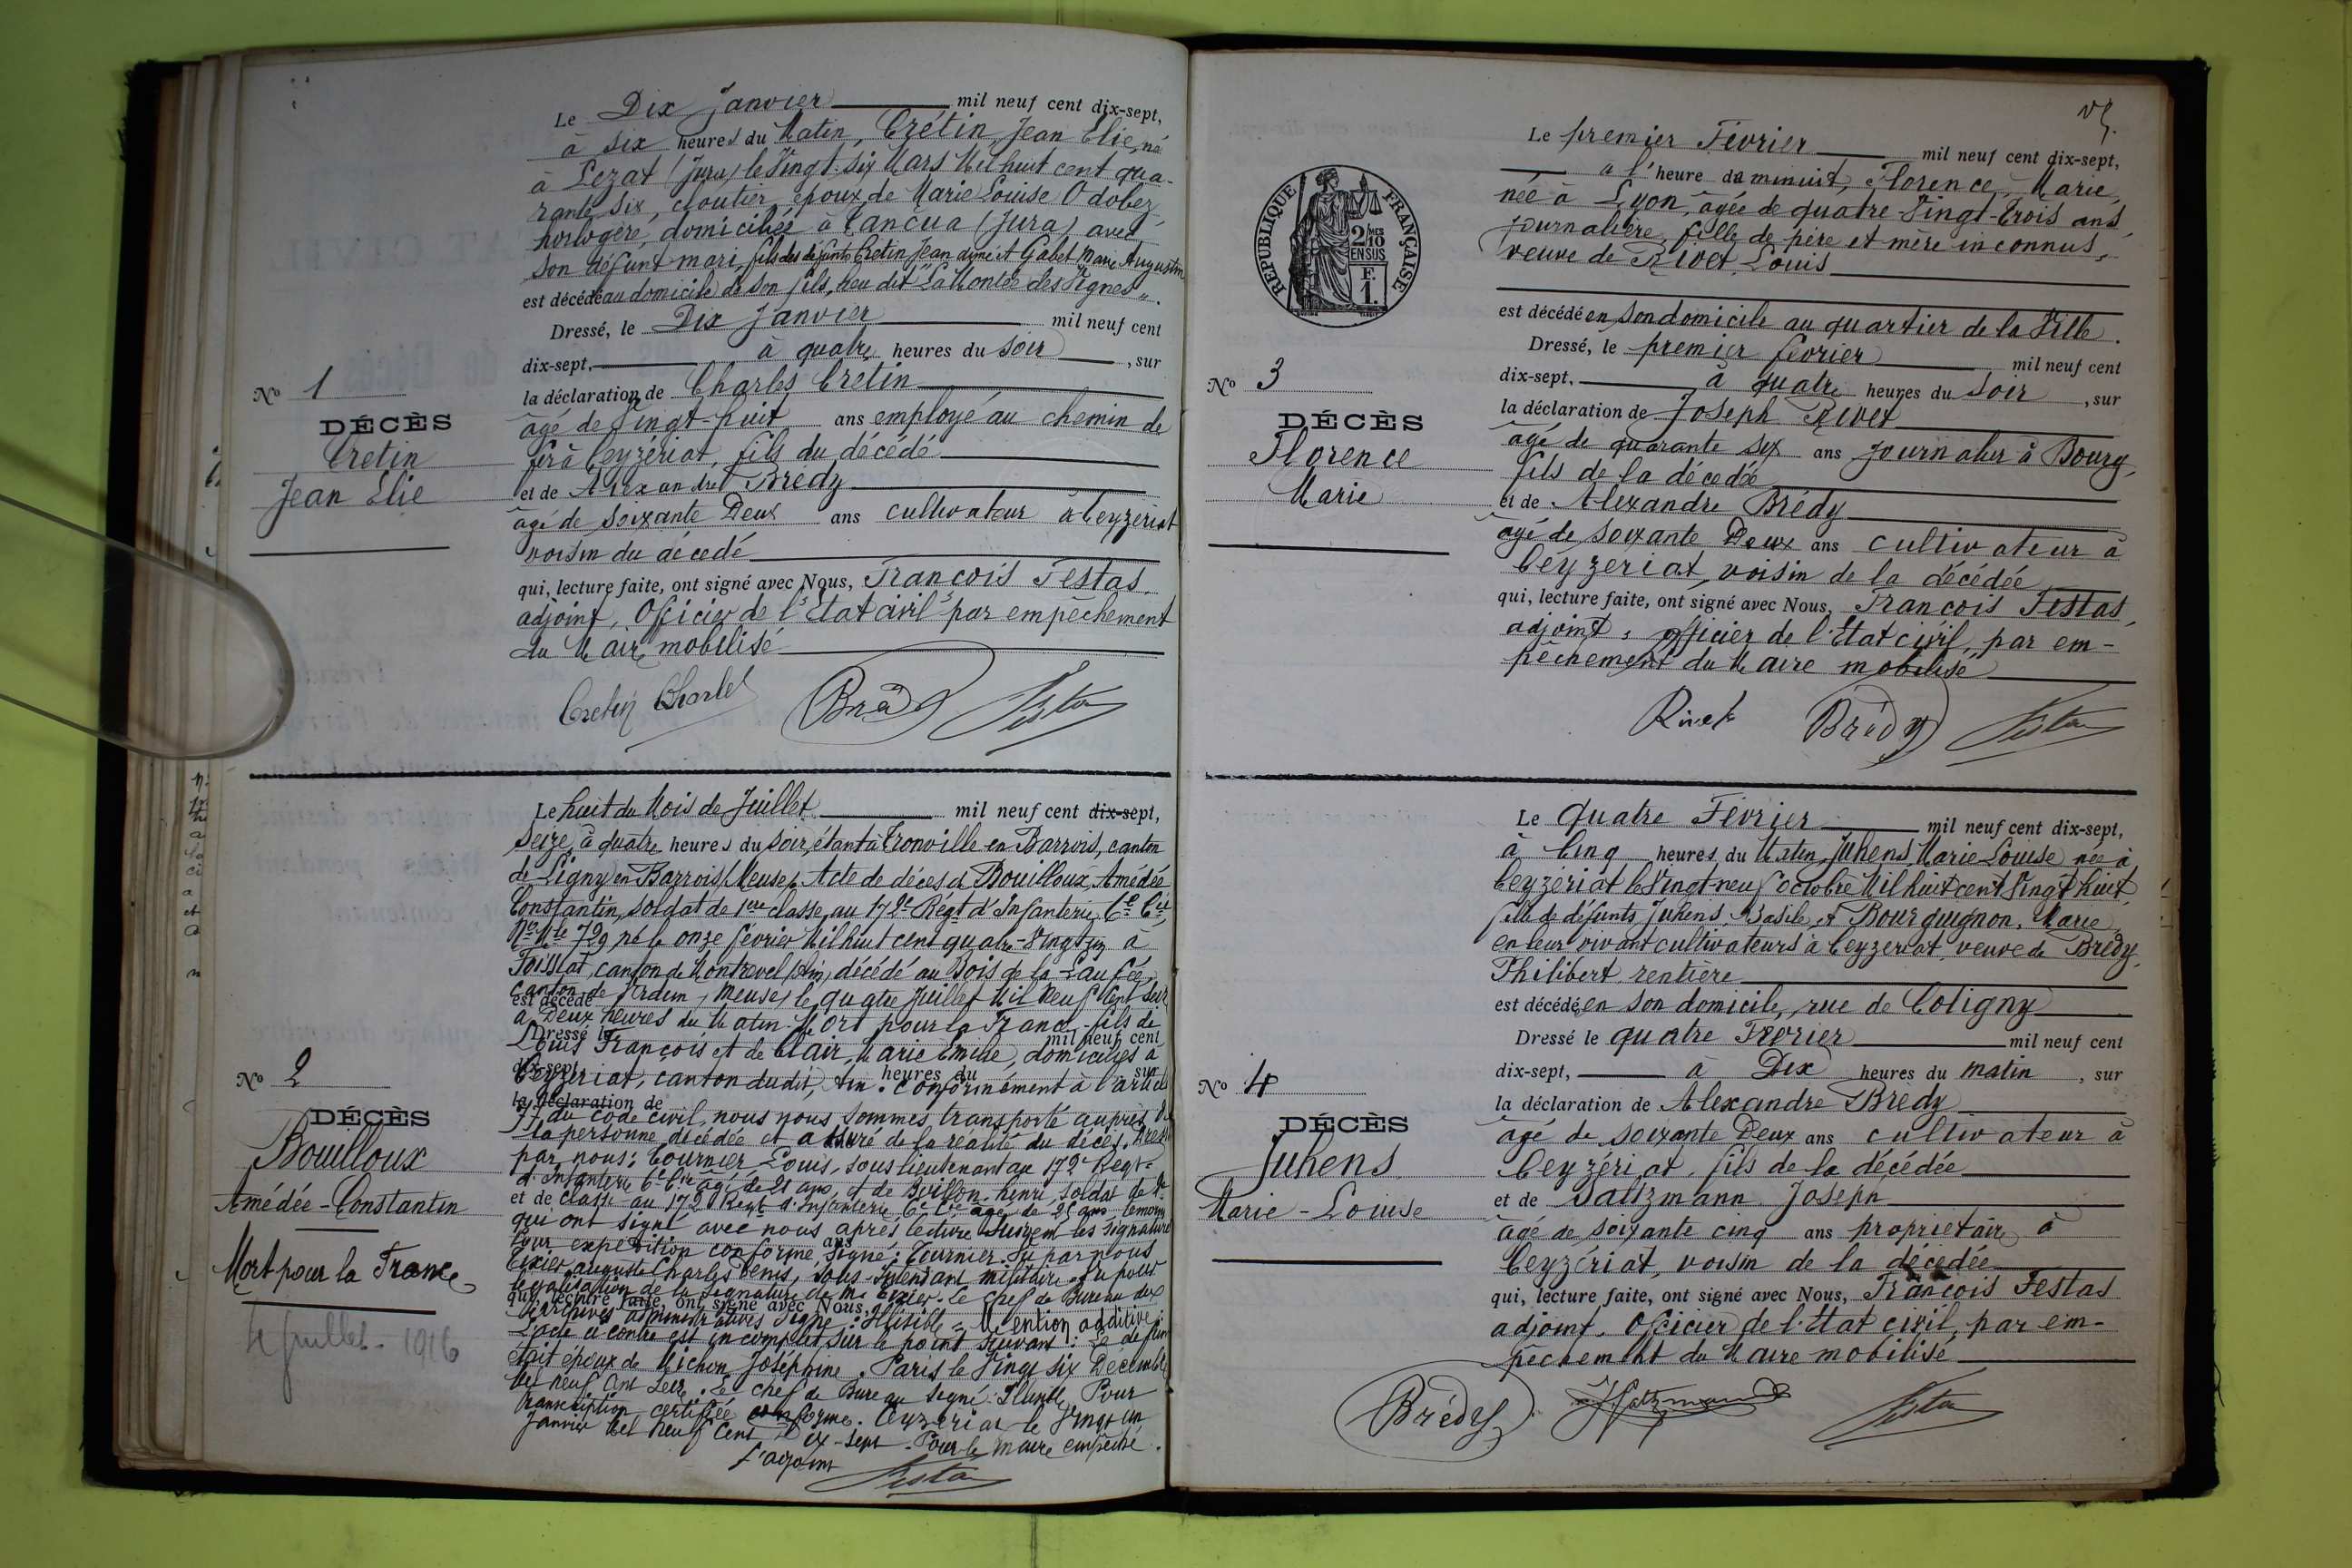 Le Dix Janvier mil neuf cent dix-sept,
à six heures du Matin, Crétin, Jean Elie, né
à Lezat (Jura) le Vingt-six Mars Mil huit cent qua-
rante six, cloutier, époux de Marie Louise Odobez,
horlogère, domiciliée à Tancua (Jura) avec
son défunt mari, fils des défunts Cretin Jean aimé et Gabet Marie Augustine
est décédé au domicile de son fils, lieu dit "La Montée des Vignes".
Dressé, le Dix Janvier mil neuf cent
dix-sept, à quatre heures du soir, sur
la déclaration de Charles Cretin
âgé de Vingt-huit ans employé au chemin de
fer à Ceyzériat, fils du décédé
et de Alexandre Brédy
âgé de soixante Deux ans cultivateur à Ceyzériat
voisin du décédé
qui, lecture faite, ont signé avec Nous, François Festas,
adjoint, Officier de l'Etat civil par empêchement
du Maire mobilisé
Cretin Charles Brédy Festas
No 1
DÉCÈS
Cretin
Jean Elie
Le huit du Mois de Juillet mil neuf cent dix-sept,
seize, à quatre heures du soir, étant à Tronville en Barrois, canton
de Ligny en Barrois (Meuse), Acte de décès de Bouilloux, Amédée
Constantin, soldat de 1ère classe, au 172e Régt d'Infanterie, 6e Cie
No Mle 729 né le onze février Mil huit cent quatre-Vingt à
Foissiat, canton de Montrevel (Ain) décédé au Bois de la Laufée,
canton de Verdun, Meuse, le quatre Juillet Mil Neuf Cent Seize
est décédé
à Deux heures du Matin. Mort pour la France, fils de
Dressé le mil neuf cent
Louis François et de Clair, Marie Emilie, domiciliés à
dix-sept, heures du sur
Ceyzériat, canton dudit, Ain. Conformément à l'article
la déclaration de
77 du code civil, nous nous sommes transporté auprès de
la personne décédée et assuré de la réalité du décès. Dressé
par nous: Tournier Louis, sous lieutenant au 172e Regt
d'Infanterie 6e Cie âgé de 21 ans, et de Bouillon henri soldat de
et de classe au 172e Regt d'Infanterie 6e Cie agé de 25 ans, témoins
qui ont signé avec nous après lecture. Suivent les signatures
Pour expédition conforme, signé: Tournier. Vu par nous
ans
Texier Auguste Charles Denis, Sous-Intendant militaire. Vu pour
légalisation de la signature de M. Texier. Le chef de Bureau des
qui, lecture faite, ont signé avec Nous,
archives administratives signé: Illisible. Mention additive:
L'acte ci contre est incomplet sur le point suivant: Le défunt
était époux de Michon Joséphine. Paris le Vingt six Décembre
Mil neuf cent seize. Le chef de Bureau signé: Pour
transcription certifiée conforme. Ceyzeriat le Vingt un
Janvier Mil Neuf Cent Dix-sept. Pour le maire empêché.
L'adjoint
Festas
No 2
DÉCÈS
Bouilloux
Amédée-Constantin
Mort pour la France
4 Juillet - 1916
Le premier Février mil neuf cent dix-sept,
à l'heure de minuit, Florence, Marie,
née à Lyon, âgée de quatre-Vingt-Trois ans,
journalière, fille de père et mère inconnus,
veuve de Rivet, Louis
est décédé en son domicile au quartier de la Ville.
Dressé, le premier février mil neuf cent
dix-sept, à quatre heures du soir, sur
la déclaration de Joseph Rivet
âgé de quarante six ans journalier à Bourg,
fils de la décédée
et de Alexandre Brédy
âgé de soixante Deux ans cultivateur à
Ceyzeriat, voisin de la décédée
qui, lecture faite, ont signé avec Nous, François Festas,
adjoint, officier de l'Etat civil, par em-
pêchement du Maire mobilisé
Rivet Brédy Festas
RÉPUBLIQUE FRANÇAISE
2/10 MES
EN SUS
F.
1.
No 3
DÉCÈS
Florence
Marie
Le quatre Février mil neuf cent dix-sept,
à Cinq heures du Matin, Juhens, Marie Louise née à
Ceyzériat le Vingt-neuf octobre Mil huit cent Vingt huit,
fille de défunts Juhens, Basile et Bourguignon, Marie
en leur vivant cultivateurs à Ceyzeriat, veuve de Brédy,
Philibert, rentière
est décédée en son domicile, rue de Coligny
Dressé le quatre Février mil neuf cent
dix-sept, à Dix heures du matin, sur
la déclaration de Alexandre Brédy
âgé de soixante Deux ans cultivateur à
Ceyzériat, fils de la décédée
et de Saltzmann Joseph
âgé de soixante cinq ans propriétaire à
Ceyzériat, voisin de la décédée
qui, lecture faite, ont signé avec Nous, François Festas
adjoint, Officier de l'Etat civil, par em-
pêchement du Maire mobilisé
Brédy Saltzmann Festas
No 4
DÉCÈS
Juhens
Marie-Louise